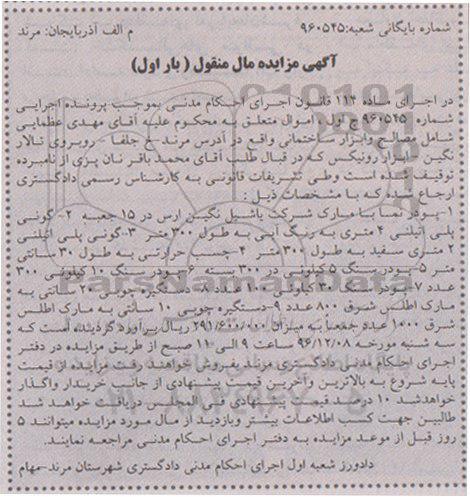 شماره بایگانی شعبه:۹۶۰۵۴۵ م الف آذربایجان: مرند
آگهی مزایده مال منقول ( بار اول)
در اجرای ماده ۱۱۴ قانون اجرای احکام مدنی بموجب پرونده اجرایی
شماره ۹۶۰۵۴۵ ج اول اموال متعلق به محکوم علیه آقای مهدی عظمایی
شامل مصالح وابزار ساختمانی واقع در آدرس مرند-خ جلفا روبروی تالار
نگین - ابزار رونیکس که در قبال طلب آقای محمد باقر نان پزی از نامبرده
توقیف شده است وطی تشریفات قانونی به کارشناس رسمی دادگستری
ارجاع شد که با مشخصات ذیل :
۱-پودر نما با مارک شرکت پاشیل نگین ارس در ۱۵ جعبه ۲- گونی
پلی اتیلنی ۴ متری به رنگ آبی به طول ۳۰۰ متر ۳-گونی پلی اتیلنی
۲ متری سفید به طول ۳۰۰ متر ۴-چسب حرارتی به طول ۳۰ سانتی
متر ۵-پودر سنگ ۵ کیلویی در ۳۰۰ بسته ۶-پودر سنگ ۱۰ کیلویی ۳۰۰
عدد ۷- کیلویی چوبی ۲۰ سانتی به
مارک اطلس شرق ۸۰۰ عدد ۹-دستگیره چوبی ۱۰ سانتی به مارک اطلس
شرق ۱۰۰۰ عدد جمعاً به میزان ۲۹۱/۶۰۰/۰۰۰ ریال برآورد گردیده است که
سه شنبه مورخه ۹۶/۱۲/۰۸ ساعت ۹ الی ۱۱ صبح از طریق مزایده در دفتر
اجرای احکام مدنی دادگستری مرند بفروش خواهند رفت مزایده از قیمت
پایه شروع به بالاترین وآخرین قیمت پیشنهادی از جانب خریدار واگذار
خواهدشد ۱۰ درصد قیمت پیشنهادی فی المجلس دریافت خواهد شد
طالبین جهت کسب اطلاعات بیشتر وبازدید از مال مورد مزایده میتوانند ۵
روز قبل از موعد مزایده به دفتر اجرای احکام مدنی مراجعه نمایند.
دادورز شعبه اول اجرای احکام مدنی دادگستری شهرستان مرند-مهام
ParsNamadData